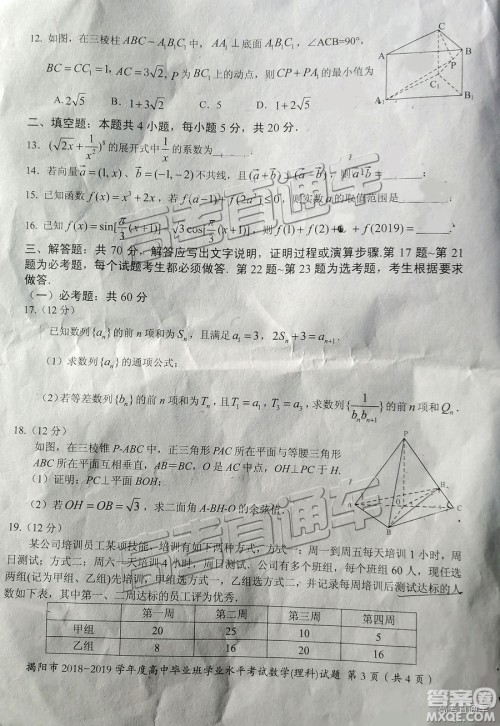 12. 如图，在三棱柱 ABC－A₁B₁C₁ 中，AA₁⊥底面 A₁B₁C₁，∠ACB=90°，
BC = CC₁ = 1, AC = 3√2, P 为 BC₁ 上的动点，则 CP + PA₁ 的最小值为
A. 2√5 B. 1+3√2 C. 5 D. 1+2√5
C
B
A
P
C₁
A₁
B₁
二、填空题：本题共 4 小题，每小题 5 分，共 20 分．
13. (√2x + 1/x²)⁸ 的展开式中 1/x 的系数为
14. 若向量 a = (1, x)、b = (-1, -2) 不共线，且 (a + b) ⊥ (a - b)，则 a·b =
15. 已知函数 f(x) = x³ + 2x，若 f(a-1) + f(2a²) ≤ 0，则实数 a 的取值范围是
16. 已知 f(x) = sin[π/3(x+1)] - √3cos[π/3(x+1)]，则 f(1) + f(2) + + f(2019) =
三、解答题：共 70 分，解答应写出文字说明，证明过程或演算步骤．第 17 题~第 21
题为必考题，每个试题考生都必须做答．第 22 题~第 23 题为选考题，考生根据要求
做答．
（一）必考题：共 60 分
17.(12 分)
已知数列{aₙ}的前 n 项和为 Sₙ，且满足 a₁ = 3，2Sₙ + 3 = aₙ₊₁．
（1）求数列{aₙ}的通项公式；
（2）若等差数列{bₙ}的前 n 项和为 Tₙ，且 T₁ = a₁，T₃ = a₂，求数列{1/(bₙbₙ₊₁)}的前 n 项和 Qₙ．
18.(12 分)
如图，在三棱锥 P-ABC 中，正三角形 PAC 所在平面与等腰三角形
ABC 所在平面互相垂直，AB=BC，O 是 AC 中点，OH⊥PC 于 H．
（1）证明：PC⊥平面 BOH；
（2）若 OH = OB = √3，求二面角 A-BH-O 的余弦值．
P
H
A
C
B
19.(12 分)
某公司培训员工某项技能，培训有如下两种方式：方式一：周一到周五每天培训 1 小时，周
日测试；方式二：周六一天培训 4 小时，周日测试．公司有多个班组，每个班组 60 人，现任选
两组(记为甲组、乙组)先培训；甲组选方式一，乙组选方式二，并记录每周培训后测试达标的人
数如下表，其中第一、二周达标的员工评为优秀．
第一周 第二周 第三周 第四周
甲组 20 25 10 5
乙组 8 16 20 16
揭阳市 2018-2019 学年度高中毕业班学业水平考试数学(理科)试题 第 3 页（共 4 页）
高考直通车
高考直通车